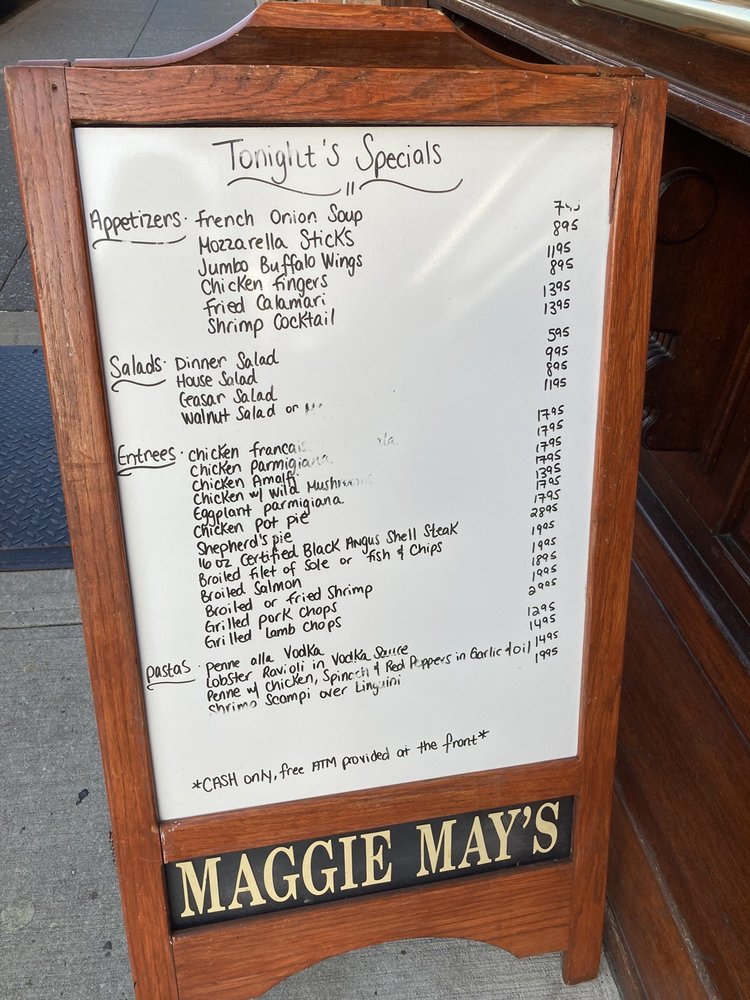 Tonight's Specials
Appetizers · French Onion Soup 795
Mozzarella Sticks 895
Jumbo Buffalo Wings 1195
Chicken Fingers 895
Fried Calamari 1395
Shrimp Cocktail 1395
Salads · Dinner Salad 595
House Salad 995
Ceasar Salad 895
Walnut Salad or 1195
Entrees · Chicken Francais 1795
Chicken Parmigiana 1795
Chicken Amalfi 1795
Chicken w/ Wild Mushrooms 1795
Eggplant parmigiana 1395
Chicken pot pie 1795
Shepherd's pie 1795
16 oz Certified Black Angus Shell Steak 2895
Broiled filet of Sole or fish & Chips 1995
Broiled Salmon 1995
Broiled or Fried Shrimp 1895
Grilled Pork Chops 1995
Grilled Lamb Chops 2995
pastas · Penne alla Vodka 1295
Lobster Ravioli in Vodka Sauce 1495
Penne w/ Chicken, Spinach & Red Peppers in Garlic & oil 1495
Shrimp Scampi over Linguini 1995
*CASH only, free ATM provided at the front*
MAGGIE MAY'S